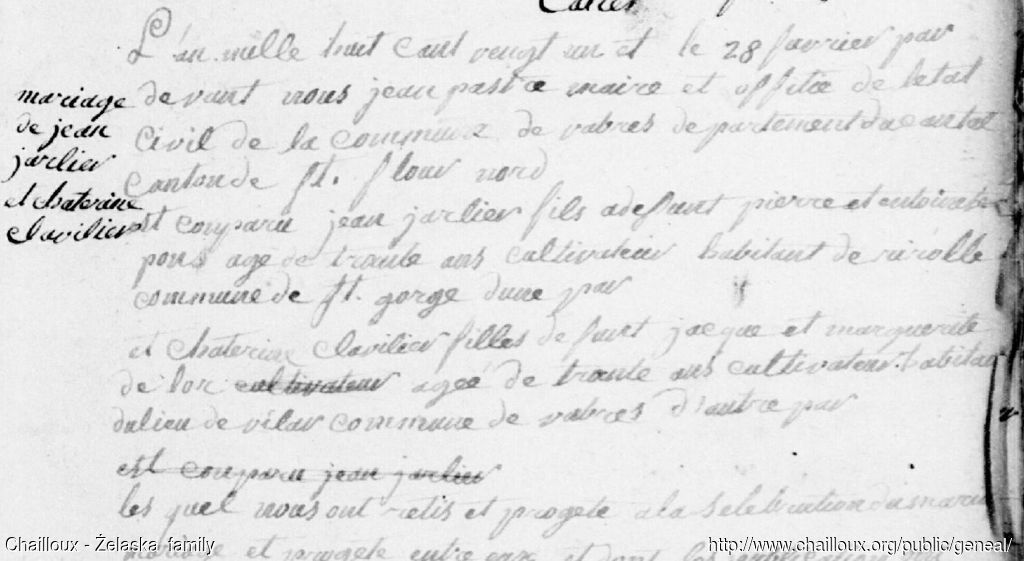 L'an mille huit cant vengt un et le 28 favrier par
mariage
de jean
jarlier
et chaterine
clavilier
devant nous jean pastre maire et offise de letat
Civil de la commune de vabres departement du cantal
Cantonde st. flour nord
est conparu jean jarlier fils adeffunt pierre et
pons age de trante ans cultivateur habitant de
commune de st. gorge dune par
et chaterine clavilier filles defunt jacque et marguerite
de lor cultivateur ageé de trante ans cultivateur habitan
dulieu de vilar commune de vabres d'autre par
est conparu jean jarlier
les quel nous ont retis et progete a la selebration du
mariage et progete entre eux et dont les
Chailloux - Żelaska family
http://www.chailloux.org/public/geneal/